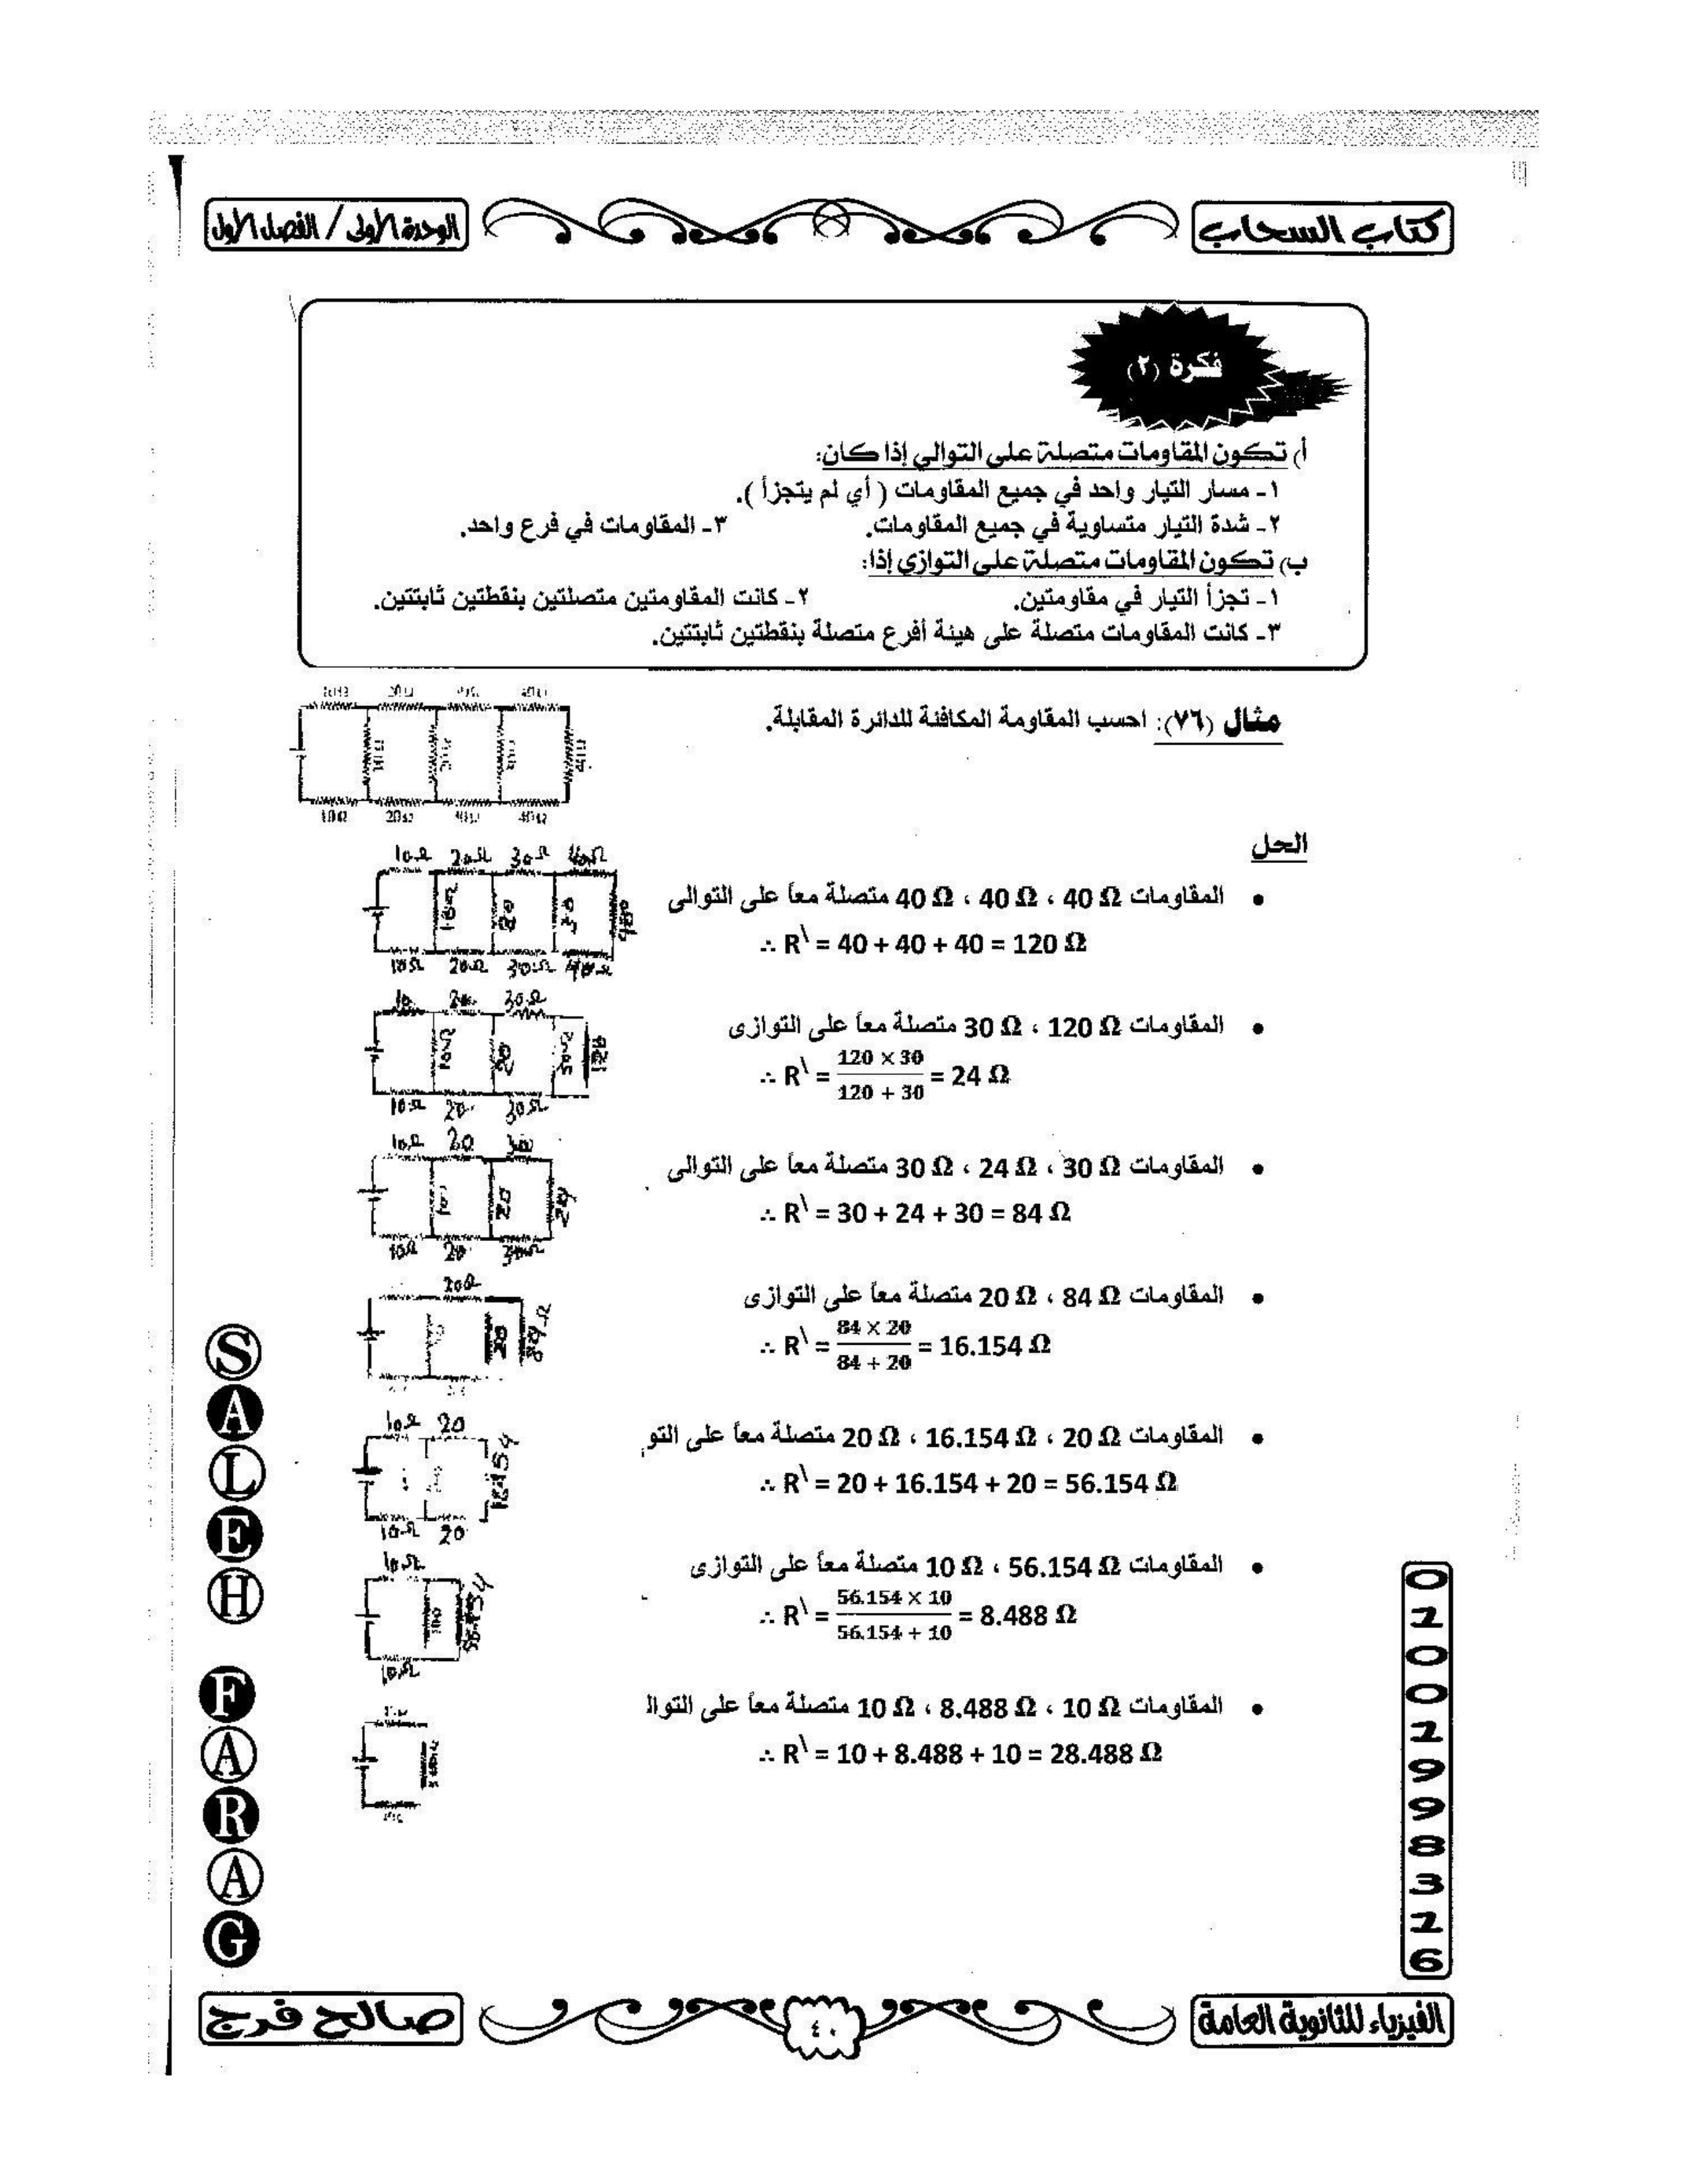 كتاب السحاب
الوحدة الأولى / الفصل الأول
فكرة (٢)
أ) تكون المقاومات متصلة على التوالي إذا كان:
١- مسار التيار واحد في جميع المقاومات ( أي لم يتجزأ ).
٢- شدة التيار متساوية في جميع المقاومات. ٣- المقاومات في فرع واحد.
ب) تكون المقاومات متصلة على التوازي إذا:
١- تجزأ التيار في مقاومتين. ٢- كانت المقاومتين متصلتين بنقطتين ثابتتين.
٣- كانت المقاومات متصلة على هيئة أفرع متصلة بنقطتين ثابتتين.
مثال (٧٦): احسب المقاومة المكافئة للدائرة المقابلة.
10Ω 20Ω 40Ω
الحل
10Ω 20Ω 30Ω 40Ω
20 30
10Ω 20Ω 30Ω 40Ω
المقاومات 40 Ω ، 40 Ω ، 40 Ω متصلة معاً على التوالى
∴ R\ = 40 + 40 + 40 = 120 Ω
10 20 30Ω
20 120
10Ω 20 30Ω
المقاومات 120 Ω ، 30 Ω متصلة معاً على التوازى
∴ R\ = 120 × 30 / 120 + 30 = 24 Ω
10Ω 20 30
20 24
10Ω 20 30Ω
المقاومات 30 Ω ، 24 Ω ، 30 Ω متصلة معاً على التوالى
∴ R\ = 30 + 24 + 30 = 84 Ω
20Ω
20 84Ω
المقاومات 84 Ω ، 20 Ω متصلة معاً على التوازى
∴ R\ = 84 × 20 / 84 + 20 = 16.154 Ω
10Ω 20
16.154
10Ω 20
المقاومات 20 Ω ، 16.154 Ω ، 20 Ω متصلة معاً على التو
∴ R\ = 20 + 16.154 + 20 = 56.154 Ω
10Ω
56.154
10Ω
المقاومات 56.154 Ω ، 10 Ω متصلة معاً على التوازى
∴ R\ = 56.154 × 10 / 56.154 + 10 = 8.488 Ω
المقاومات 10 Ω ، 8.488 Ω ، 10 Ω متصلة معاً على التوال
∴ R\ = 10 + 8.488 + 10 = 28.488 Ω
SALEH FARAG
02002998326
الفيزياء للثانوية العامة
٤٠
صالح فرج